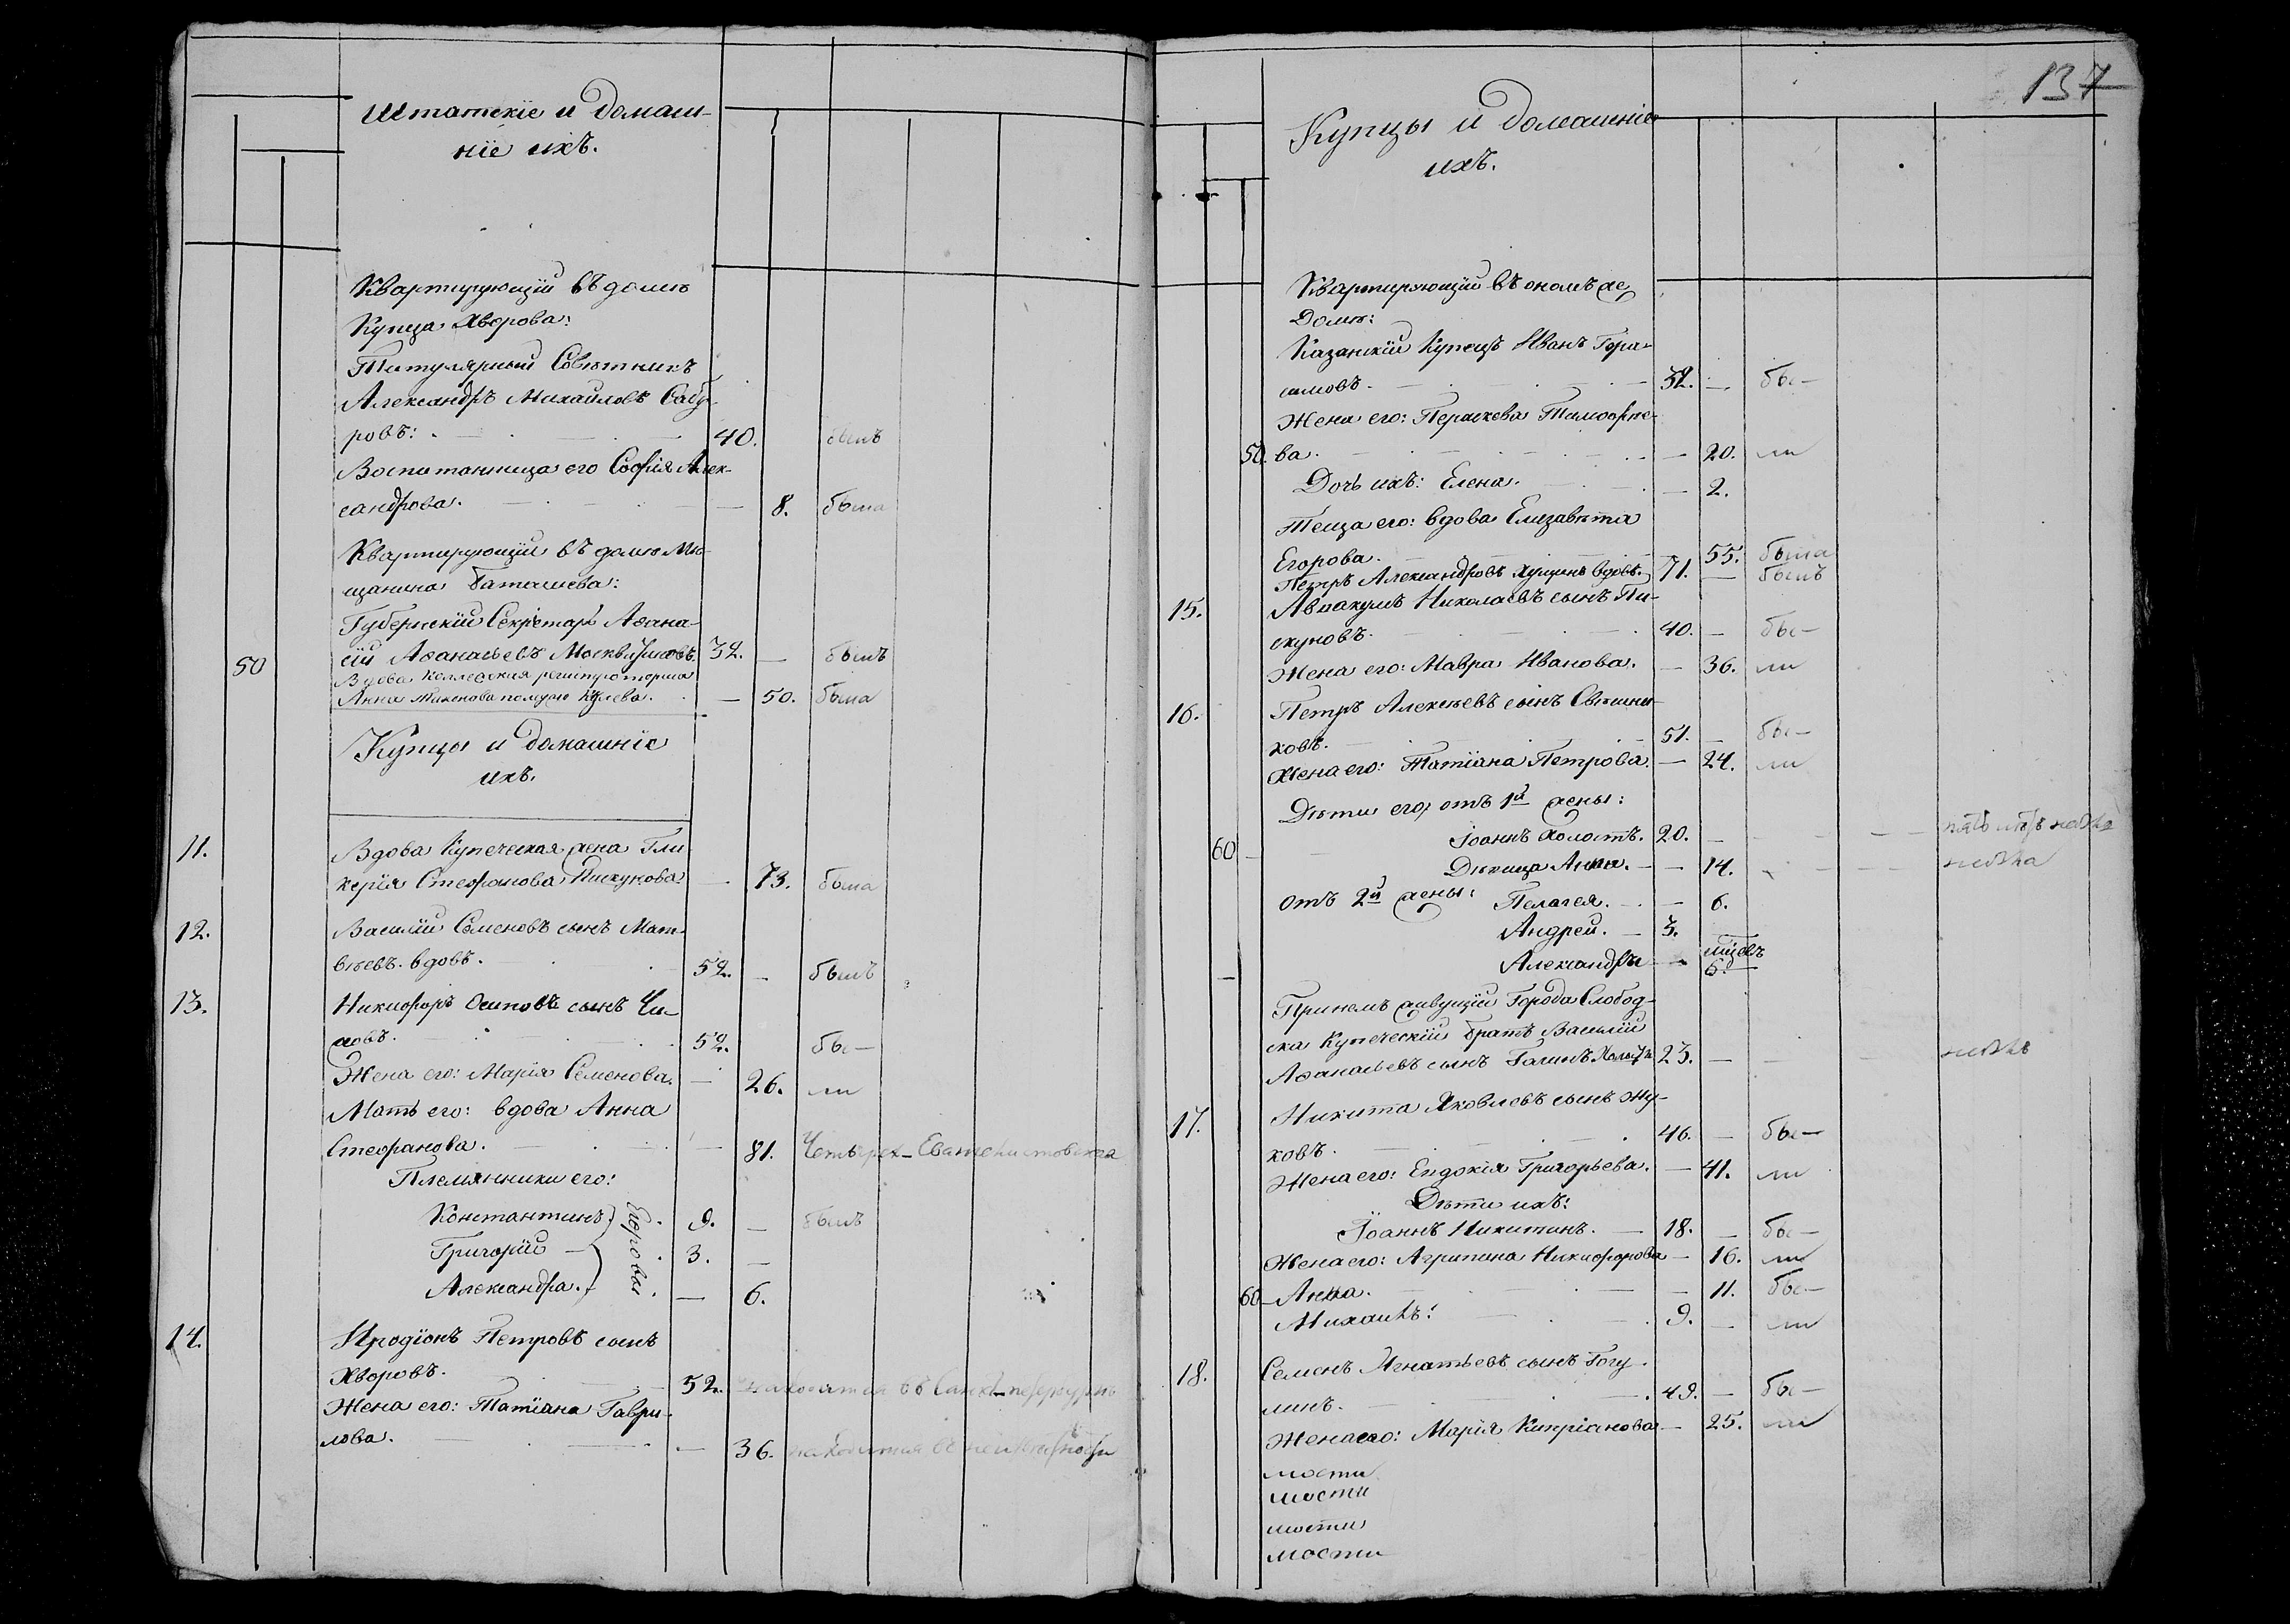 Штатскіе и домаш-
ніе ихъ.
Квартирующіи въ домѣ
Купца Хворова:
Титулярный Совѣтникъ
Александръ Михайловъ Сабу-
ровъ: 40. былъ
Воспитанница его Софія Алек-
сандрова. — 8. была
Квартирующіи въ домѣ Мѣ-
щанина Баташева:
Губернскій Секретарь Афана-
50 сій Афанасьевъ Москвитиновъ. 32. — былъ
Вдова Коллежская регистраторша
Анна — 50. была
Купцы и домашніе
ихъ.
11. Вдова Купеческая жена Гли-
керія Стефанова Пискунова. — 73. была
12. Василій Семеновъ сынъ Мат-
вѣевъ. вдовъ. 52. — былъ
13. Никифоръ Осиповъ сынъ Чи-
жовъ. 52. бы—
Жена его: Марія Семенова. — 26. ли
Мать его: вдова Анна
Стефанова. — 81. Четырех-Евангелистовская
Племянники его:
Константинъ Егоровы. 9. — былъ
Григорій — 3. —
Александра. — 6.
14. Иродіонъ Петровъ сынъ
Хворовъ. 52. находится въ Санкт-петербургѣ
Жена его: Татіана Гаври-
лова. — 36. находится въ
137
Купцы и домашніе
ихъ.
Квартирующіи въ ономъ же
Домѣ:
Казанскій Купецъ Иванъ Гера-
симовъ. 32. — бы—
Жена его: Параскева Тимофѣе-
50. ва. — 20. ли
Дочь ихъ: Елена. — 2.
Теща его: вдова Елизавѣта
Егорова. 55. была
Петръ Александровъ вдовъ. 71. — былъ
15. Аввакумъ Николаевъ сынъ Пи-
скуновъ. 40. — бы—
Жена его: Мавра Иванова. — 36. ли
16. Петръ Алексѣевъ сынъ Свѣшни-
ковъ. 51. — бы—
Жена его: Татіана Петрова. — 24. ли
Дѣти его, отъ 1й жены:
60 — Іоаннъ Холостъ. 20. — пять лѣтъ небылъ
Дѣвица Анна. — 14. небыла
отъ 2й жены: Пелагея. — 6.
Андрей. — 3.
Александра — мѣсяцъ
6.
При немъ живущій Города Слобод-
ска Купеческій братъ Василій
Афанасьевъ сынъ Галинъ. Холостъ 23. — небылъ
17. Никита Яковлевъ сынъ Жу-
ковъ. 46. — бы—
Жена его: Евдокія Григорьева. — 41. ли
Дѣти ихъ:
Іоаннъ Никитинъ. — 18. — бы—
Жена его: Агрипина Никифорова — 16. ли
60 — Анна. — 11. бы—
Михаилъ. 9. — ли
18. Семенъ Игнатьевъ сынъ Гогу-
линъ. 49. — бы—
Жена его: Марія Кипріанова — 25. ли
мости
мости
мости
мости